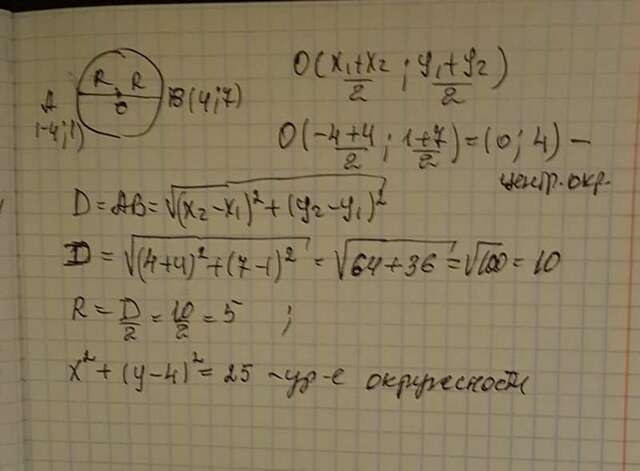 R R
A O B(4;7)
(-4;1)
O(x₁+x₂/2 ; y₁+y₂/2)
O(-4+4/2 ; 1+7/2)=(0; 4) –
центр.окр.
D=AB=√(x₂-x₁)²+(y₂-y₁)²
D=√(4+4)²+(7-1)²=√64+36=√100=10
R=D/2=10/2=5 ;
x²+(y-4)²=25 -ур-е окружности